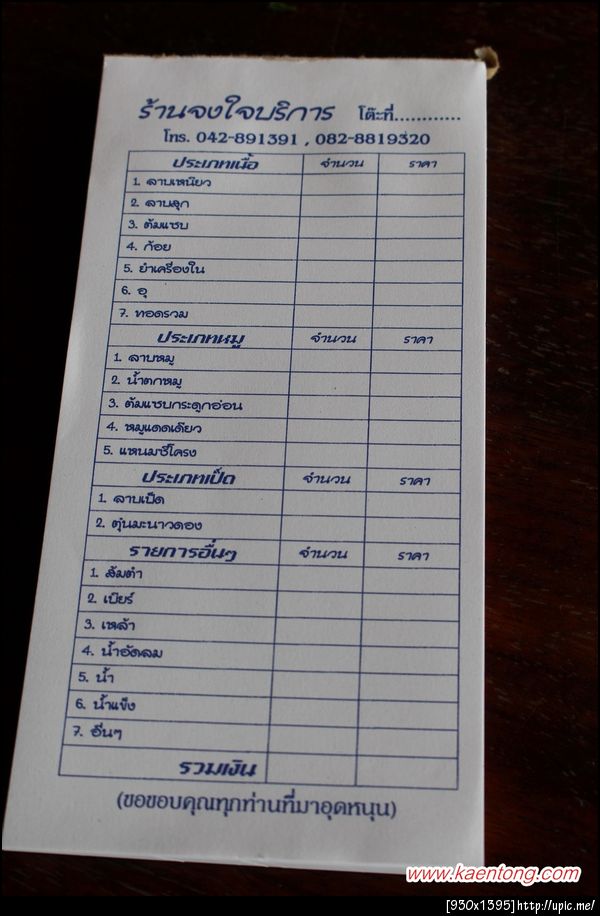 ร้านจงใจบริการ โต๊ะที่............
โทร. 042-891391 , 082-8819320
ประเภทเนื้อ จำนวน ราคา
1. ลาบเหนียว
2. ลาบสุก
3. ต้มแซบ
4. ก้อย
5. ยำเครื่องใน
6. อุ
7. ทอดรวม
ประเภทหมู จำนวน ราคา
1. ลาบหมู
2. น้ำตกหมู
3. ต้มแซบกระดูกอ่อน
4. หมูแดดเดียว
5. แหนมซี่โครง
ประเภทเป็ด จำนวน ราคา
1. ลาบเป็ด
2. ตุ๋นมะนาวดอง
รายการอื่นๆ จำนวน ราคา
1. ส้มตำ
2. เบียร์
3. เหล้า
4. น้ำอัดลม
5. น้ำ
6. น้ำแข็ง
7. อื่นๆ
รวมเงิน
(ขอขอบคุณทุกท่านที่มาอุดหนุน)
www.kaentong.com
[930x1395]http://upic.me/